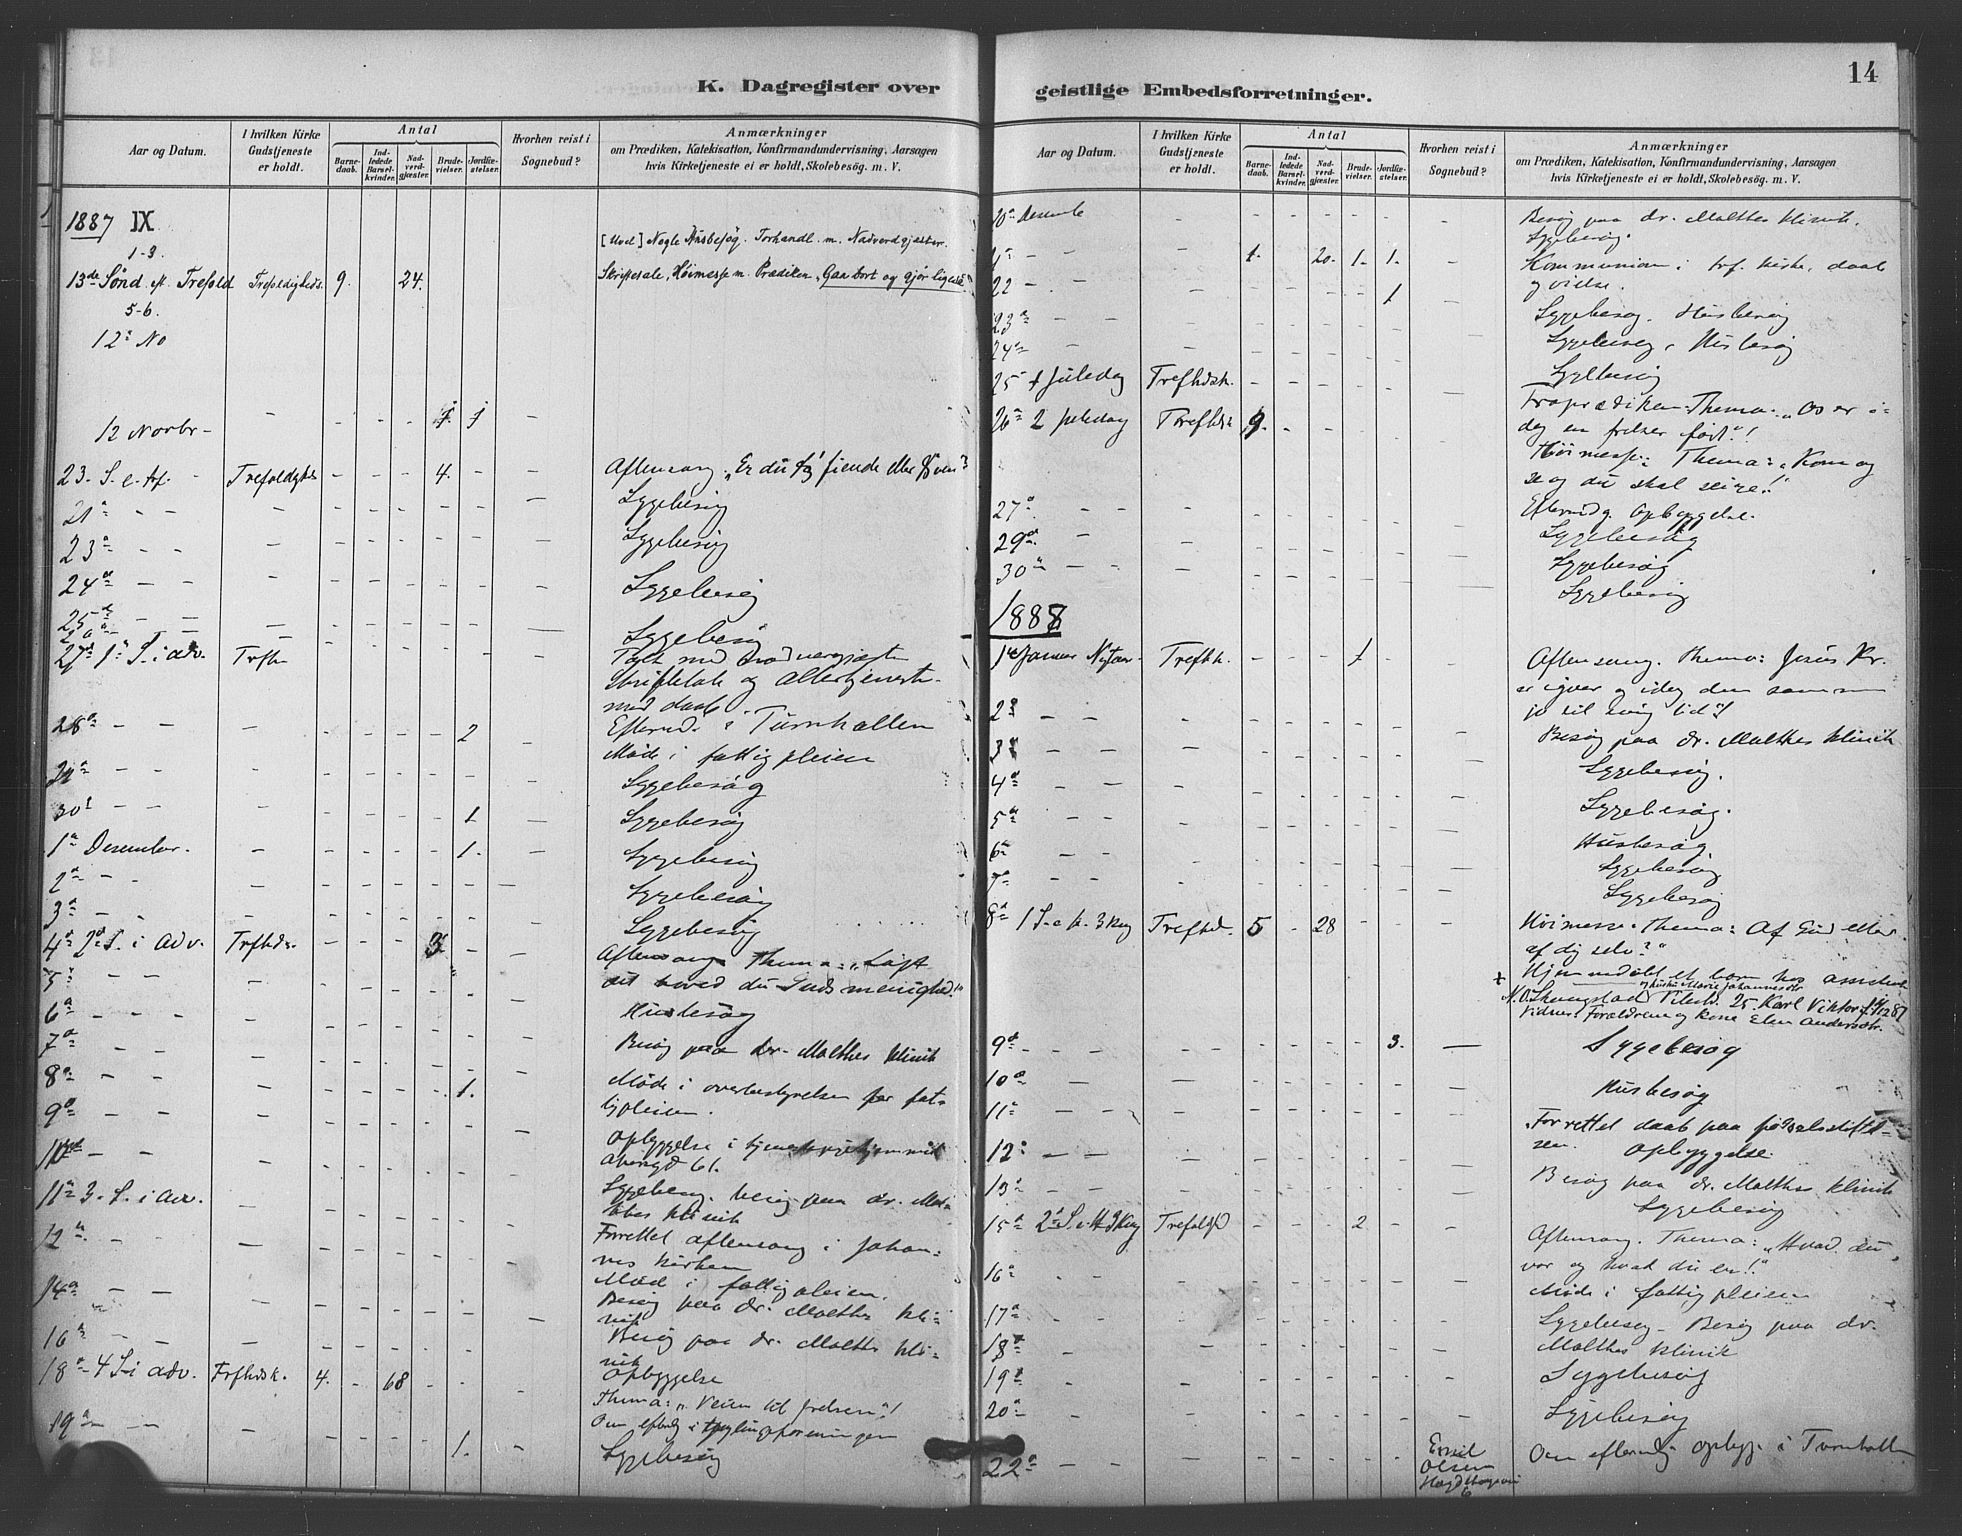 14
K. Dagregister over geistlige Embedsforretninger.
Aar og Datum.
I hvilken Kirke Gudstjeneste er holdt.
Antal
Barnedaab.
Indledede Barselkvinder.
Nadverdgjæster.
Brudevielser.
Jordfæstelser.
Hvorhen reist i Sognebud?
Anmærkninger
om Prædiken, Katekisation, Konfirmandundervisning, Aarsagen
hvis Kirketjeneste ei er holdt, Skolebesög. m. V.
1887 IX
1-3. [Uvd] Nogle Husbesøg. Forhandl. m. Nadverdgjæster.
13de Sønd eft. Trefold Trefoldigheds. 9. 24. Skriftetale, Høimesse m. Prædiken. Gaa bort og gjør ligesaa
5-6.
12 No
12 Novbr - - - - - 1 1 -
23. S. e. tf. - Trefoldighds - - - 4. - Aftensang "Er du fiende eller ven?
21 - - - Sygebesøg
23 - - - Sygebesøg
24 - - - Sygebesøg
25 - - - Sygebesøg
27 1 S. i adv. Trfh
Skriftetale og Altertjeneste
med daab
28 - - - 2 - Eftermd. i Turnhallen
Møde i fattigpleien
- - - Sygebesøg
30 - - - 1 - Sygebesøg
1 Desember. - 1. - Sygebesøg
2 - - - Sygebesøg
3 - - - Sygebesøg
4 2 S. i adv. Trfhds. - - - 3 - Aftensang Thema: "Løft
dit hoved du Guds menighed!"
5 - -
6 - - - Husbesøg
7 - - - Besøg paa dr. Malthes klinik
8 - - - 1. Møde i overbestyrelsen for fat-
tigpleien.
9 - -
10 - - - Opbyggelse i
61.
11 3. S. i adv. - Sygebesøg. besøg paa dr. Mal-
thes klinik
12 - - - Forrettet aftensang i Johan-
nes kirken
Møde i fattigpleien.
14 - - - Besøg paa dr. Malthes kli-
nik
16 - - - Besøg paa dr. Malthes kli-
nik
Opbyggelse
18 4 S. i adv. Trfhdsk. 4. - 68 - - Thema: "Veien til frelsen"!
19 - - - 1. - Sygebesøg
Aar og Datum.
I hvilken Kirke Gudstjeneste er holdt.
Antal
Barnedaab.
Indledede Barselkvinder.
Nadverdgjæster.
Brudevielser.
Jordfæstelser.
Hvorhen reist i Sognebud?
Anmærkninger
om Prædiken, Katekisation, Konfirmandundervisning, Aarsagen
hvis Kirketjeneste ei er holdt, Skolebesög. m. V.
20 Desembr - Besøg paa dr. Malthes klinik.
Sygebesøg.
- - - 1. 20. 1. 1. - Kommunion i trf. kirke, daab
og vielse.
22 - - - 1 - Sygebesøg. Husbesøg
23 - - - Sygebesøg, Husbesøg
24 - - Sygebesøg
25 1 Juledag Trefhdsk. - Froprædiken. Thema: "Os er i
dag en frelser født"!
26 2 juledag Trefhds 9. - Høimesse. Thema: "Kom og
se og du skal seire!"
Eftermdg. Opbyggelse.
27 - - - Sygebesøg
29 - - Sygebesøg
30 - - - Sygebesøg
1888
1 Januar Nytaar. Trefhk. - 1 - Aftensang. Thema: Jesus Kr.
er igaar og idag den samme
ja til evig tid"!
2 - - - Besøg paa dr. Malthes klinik
3 - - - Sygebesøg.
4 - - - Sygebesøg.
5 - - - Husbesøg
6 - - - Sygebesøg
7 - - Sygebesøg
8 1 S. e. h. 3 kg Trefhd. 5 - 28 - - - Høimesse. Thema: Af Gud eller
af dig selv?"
+ Hjemmedøbt et barn hos
og hustru Marie Johannesdtr
25. Karl Viktor f. 14/12 87
Vidner: Forældrene og kone Elen Andersdtr.
9 - - - 3. - Sygebesøg
10 - - - Husbesøg
11 - - - Forrettet daab paa fødselsstiftel-
sen. Opbyggelse.
12 - - - Besøg paa dr. Malthes klinik
13 - - - Sygebesøg
15 2 S. e. H 3 Kg Trefoldhd - 2 - - Aftensang. Thema: "Hvad du
var og hvad du er!"
16 - - - Møde i fattigpleien
17 - - - Sygebesøg - Besøg paa dr.
Malthes klinik
18 - -
19 - - Sygebesøg
20 - - - Sygebesøg
22 - - - Emil
Olsen
6
Om efterm. opbygg. i Turnhallen